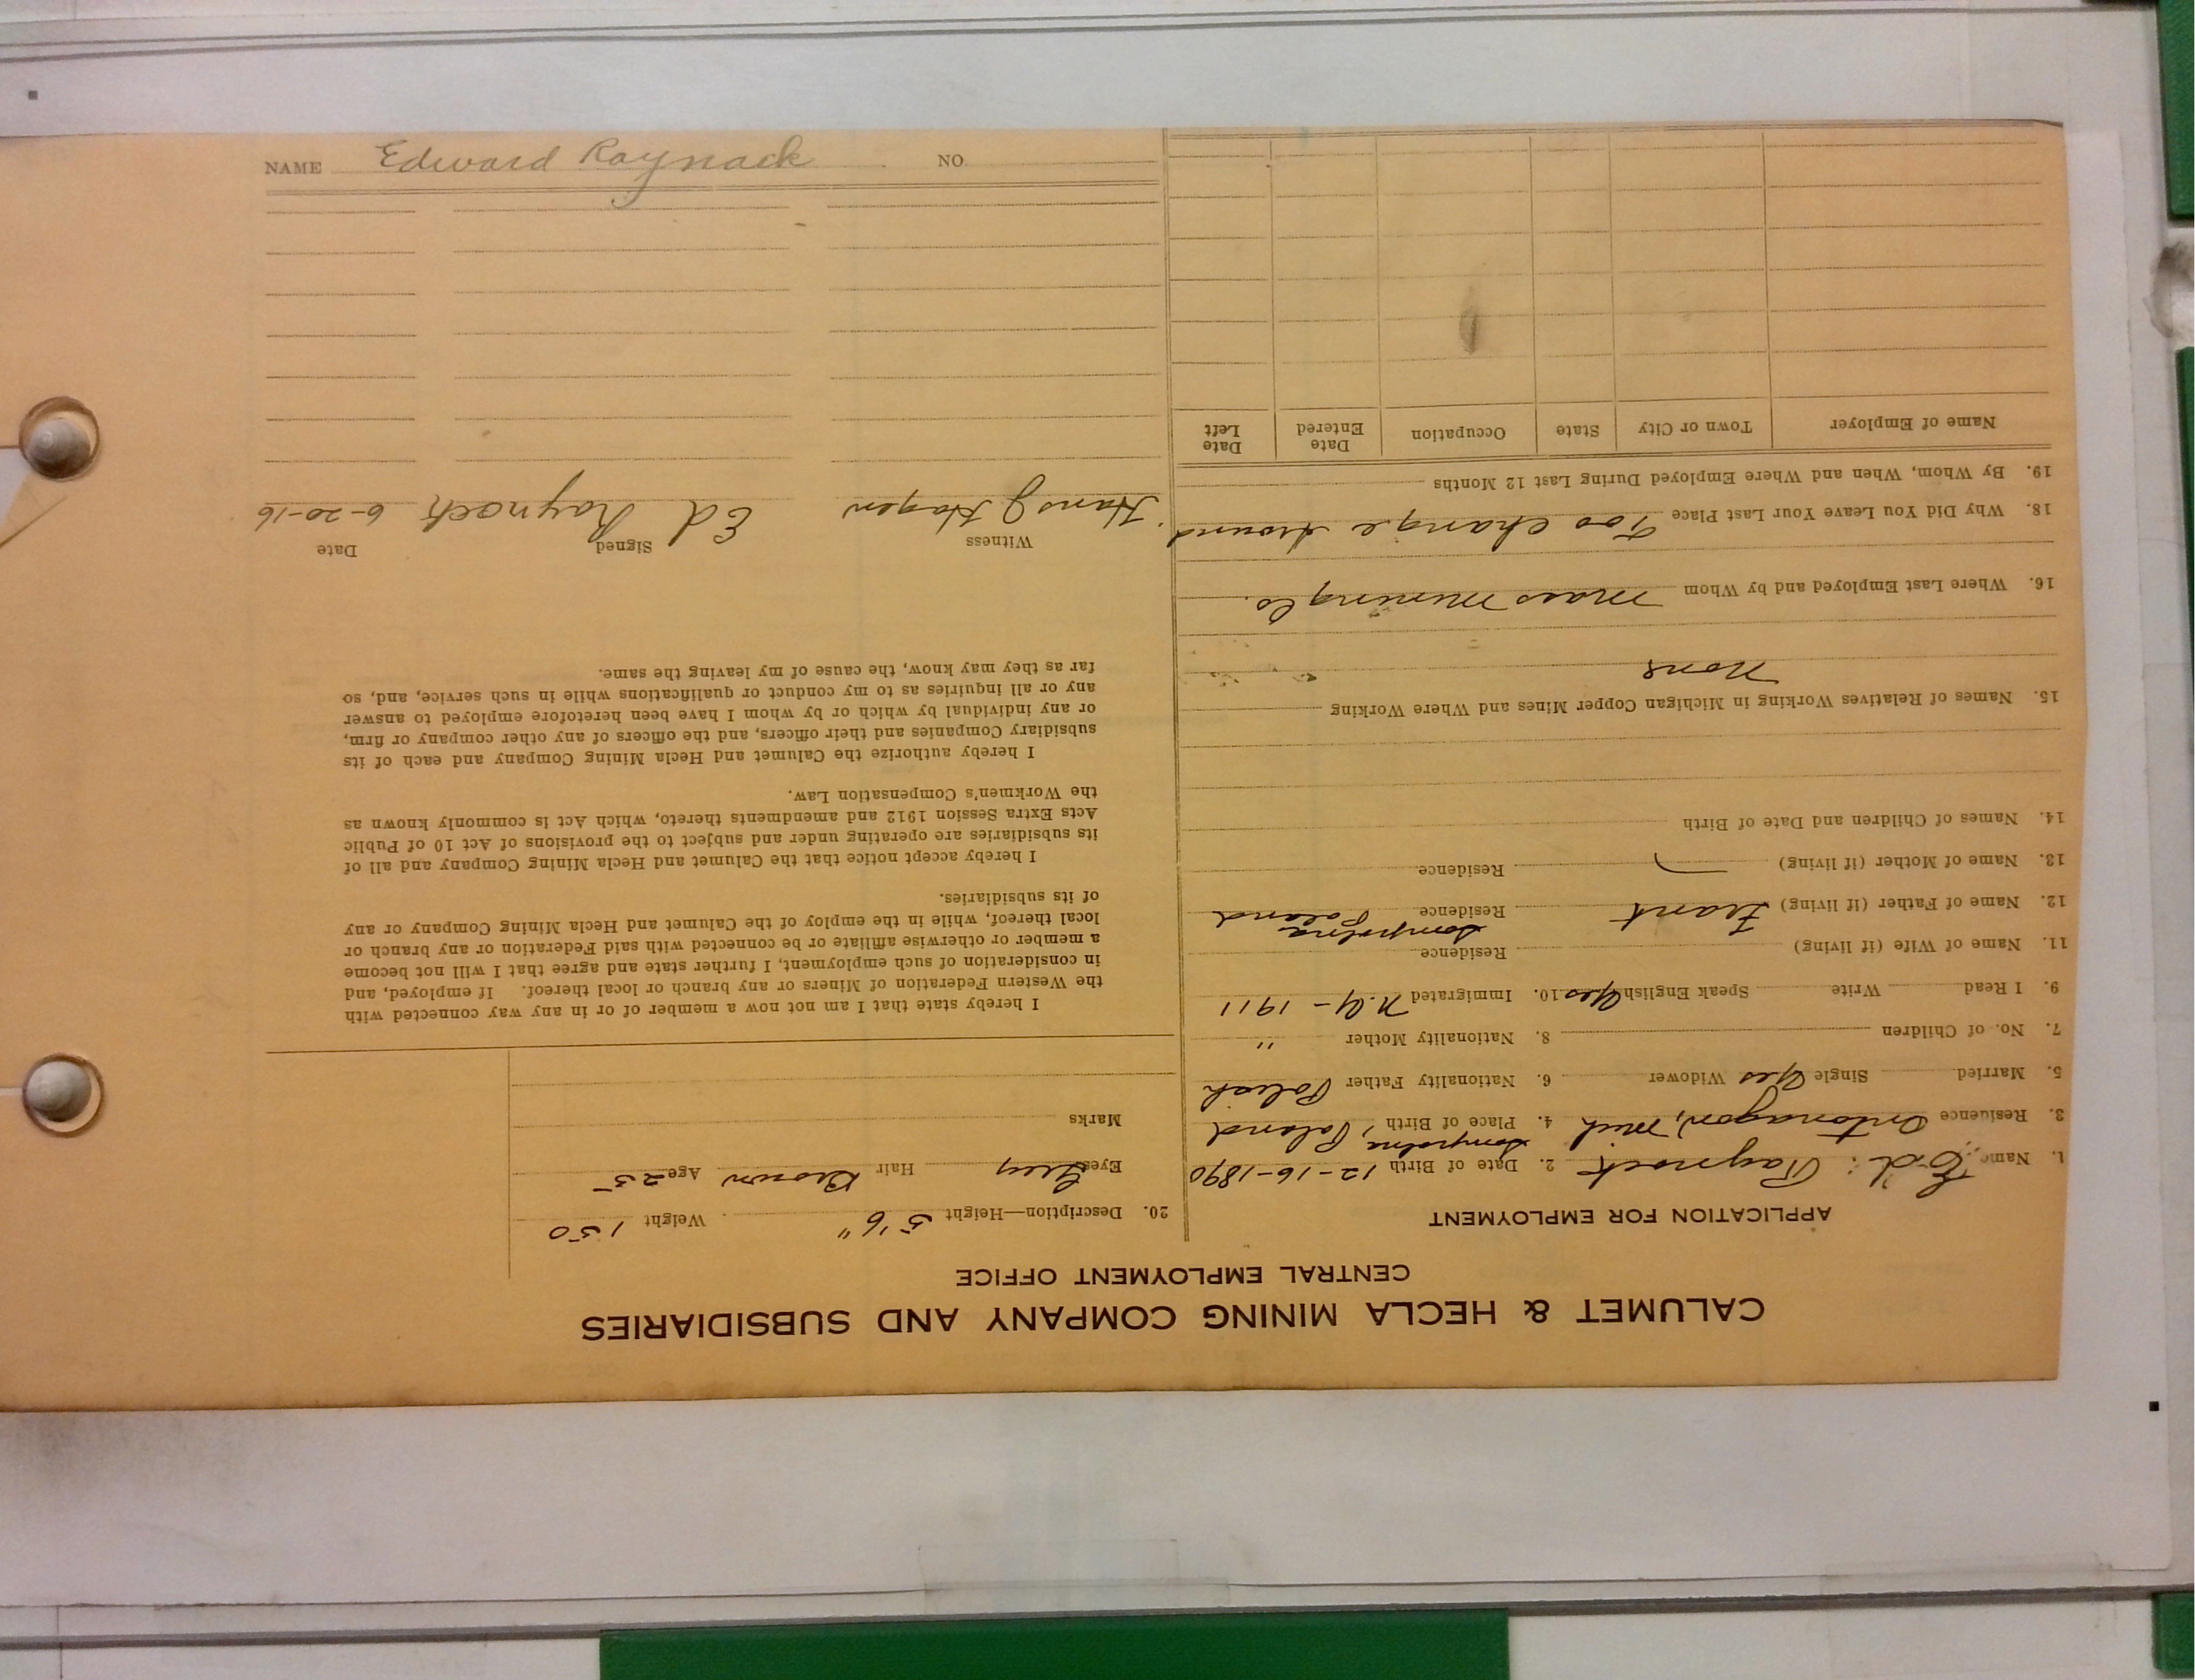 CALUMET & HECLA MINING COMPANY AND SUBSIDIARIES
CENTRAL EMPLOYMENT OFFICE
APPLICATION FOR EMPLOYMENT
1. Name Ed. Raynock 2. Date of Birth 12-16-1890
3. Residence Ontonagon, Mich 4. Place of Birth Poland
5. Married Single Yes Widower 6. Nationality Father Polish
7. No. of Children 8. Nationality Mother "
9. I Read Write Speak English Yes 10. Immigrated N.Y - 1911
11. Name of Wife (if living) Residence
12. Name of Father (if living) Residence Poland
13. Name of Mother (if living) Residence
14. Names of Children and Date of Birth
15. Names of Relatives Working in Michigan Copper Mines and Where Working
None
16. Where Last Employed and by Whom Mass Mining Co.
18. Why Did You Leave Your Last Place Too change around
19. By Whom, When and Where Employed During Last 12 Months
Name of Employer Town or City State Occupation Date Entered Date Left
20. Description—Height 5'6" Weight 150
Eyes Grey Hair Brown Age 25
Marks
I hereby state that I am not now a member of or in any way connected with
the Western Federation of Miners or any branch or local thereof. If employed, and
in consideration of such employment, I further state and agree that I will not become
a member or otherwise affiliate or be connected with said Federation or any branch or
local thereof, while in the employ of the Calumet and Hecla Mining Company or any
of its subsidiaries.
I hereby accept notice that the Calumet and Hecla Mining Company and all of
its subsidiaries are operating under and subject to the provisions of Act 10 of Public
Acts Extra Session 1912 and amendments thereto, which Act is commonly known as
the Workmen's Compensation Law.
I hereby authorize the Calumet and Hecla Mining Company and each of its
subsidiary Companies and their officers, and the officers of any other company or firm,
or any individual by which or by whom I have been heretofore employed to answer
any or all inquiries as to my conduct or qualifications while in such service, and, so
far as they may know, the cause of my leaving the same.
Witness Signed Date
Hans J Hagen Ed Raynock 6-20-16
NAME Edward Raynack NO.